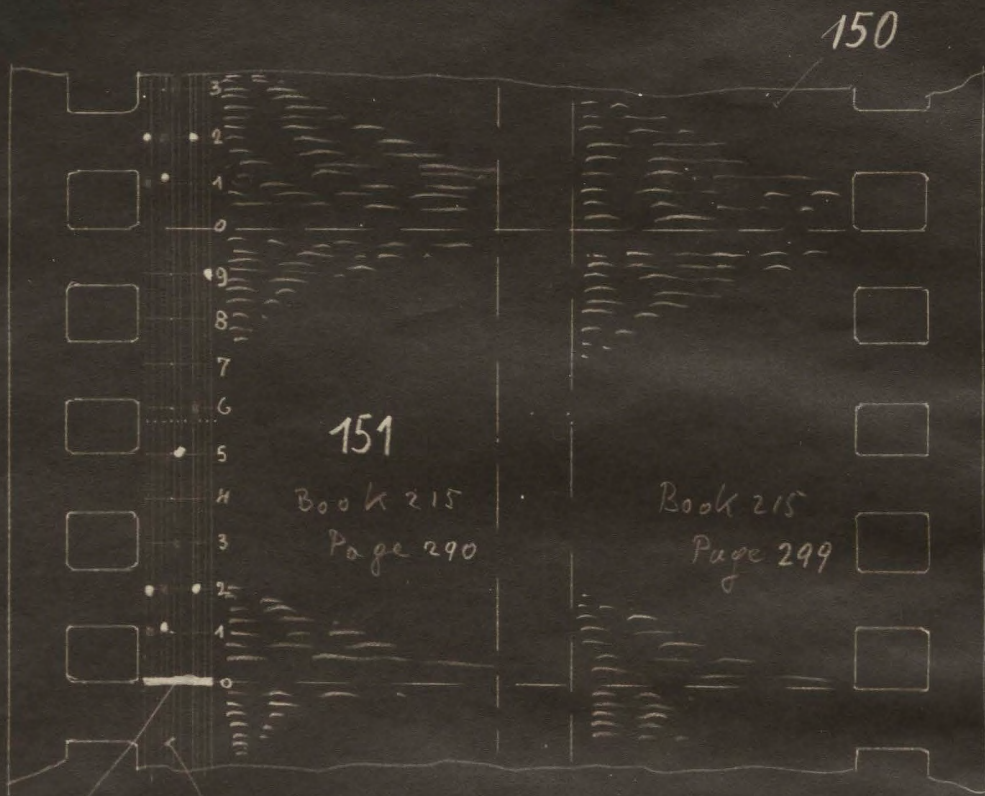 150
3
2
1
0
9
8
7
6
5
4
3
2
1
0
151
Book 215
Page 290
Book 215
Page 299